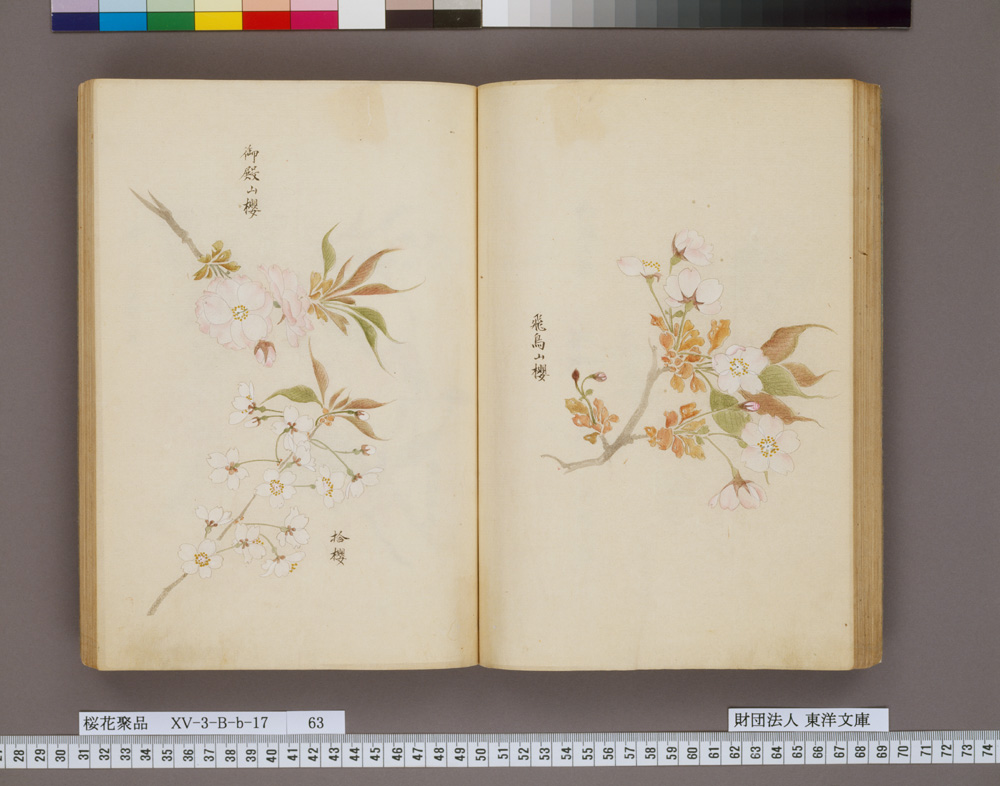 飛鳥山櫻
御殿山櫻
拾櫻
桜花聚品 XV-3-B-b-17 63
財団法人 東洋文庫
28 29 30 31 32 33 34 35 36 37 38 39 40 41 42 43 44 45 46 47 48 49 50 51 52 53 54 55 56 57 58 59 60 61 62 63 64 65 66 67 68 69 70 71 72 73 74